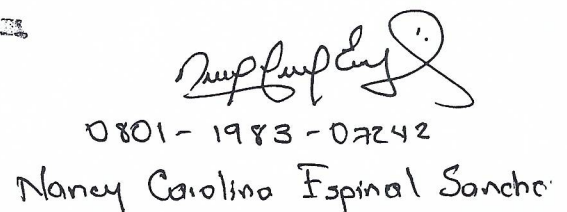 0801 - 1983 - 07242
Nancy Carolina Espinal Sanche